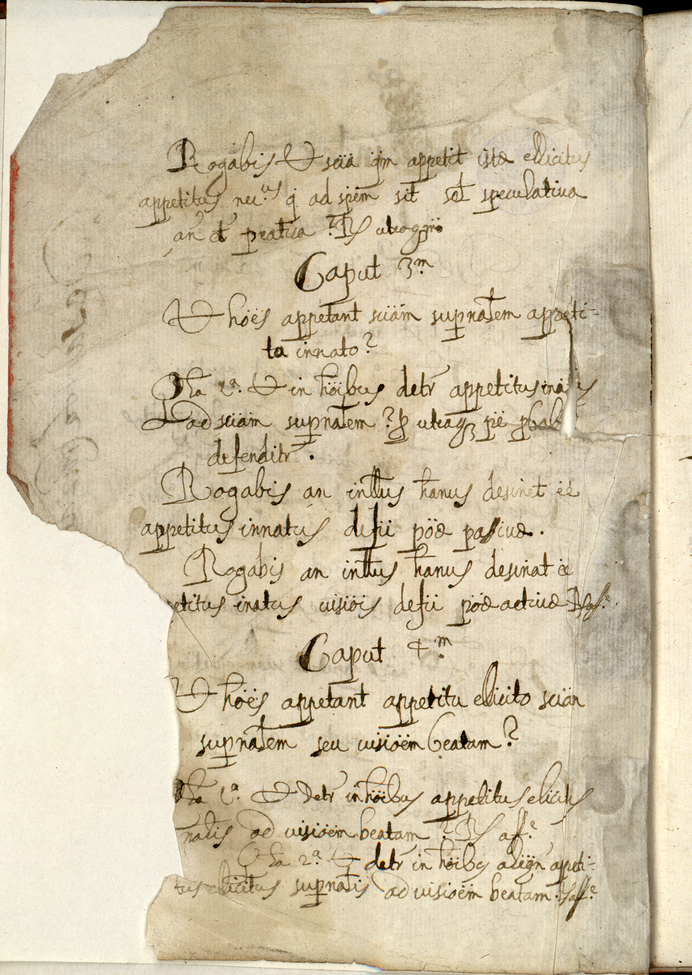 Rogabis Ut sciã qm appetit iste ellicitus
appetitus nec.us q ad spem sit sol speculativa
an et pratica? R/ utraqm
Caput 3.m
Ut hoes appetant sciam supnalem appeti-
tu innato?
Dta 1.a Ut in hoibus detr appetitus inatus
ad sciam supnalem? p utraq pe pbabr
defenditr.
Rogabis an intus hanus desinet ee
appetitus innatus defii põæ passivæ.
Rogabis an intus hanus desinat ee
petitus inatus visiois defii poæ activæ R/ aff.e
Caput 4.m
Ut hoes appetant appetitu elicito sciam
supnalem seu visioem beatam?
Dta 1.a Ut detr in hoibus appetitus elicitus
nalis ad visioem beatam? R/ aff.e
Dta 2.a Ut detr in hoibus aliqn apeti-
tus elicitus supnalis ad visioem beatam. R/ aff.e